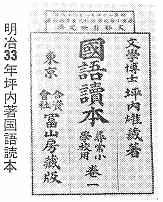 明治33年坪内著国語読本
文學博士 坪內雄藏著
國語讀本
尋常小學校用 卷一
東京 合資會社 冨山房藏版